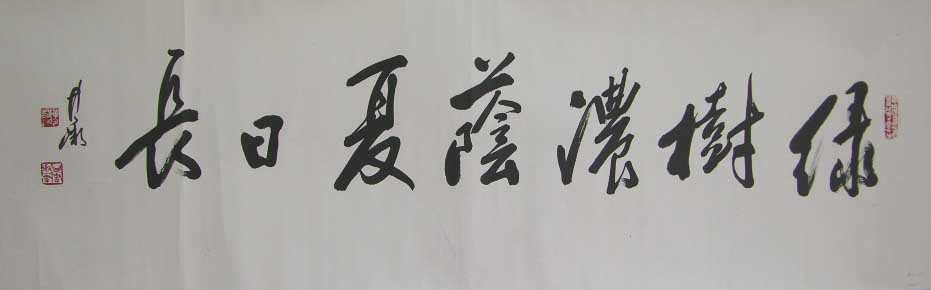 绿樹濃蔭夏日長